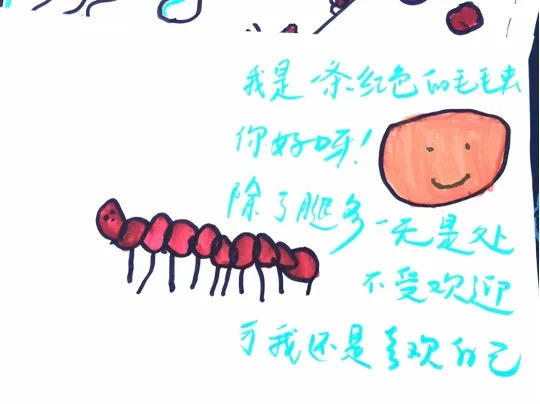 我是一条红色的毛毛虫
你好呀！
除了腿多一无是处
不受欢迎
可我还是喜欢自己